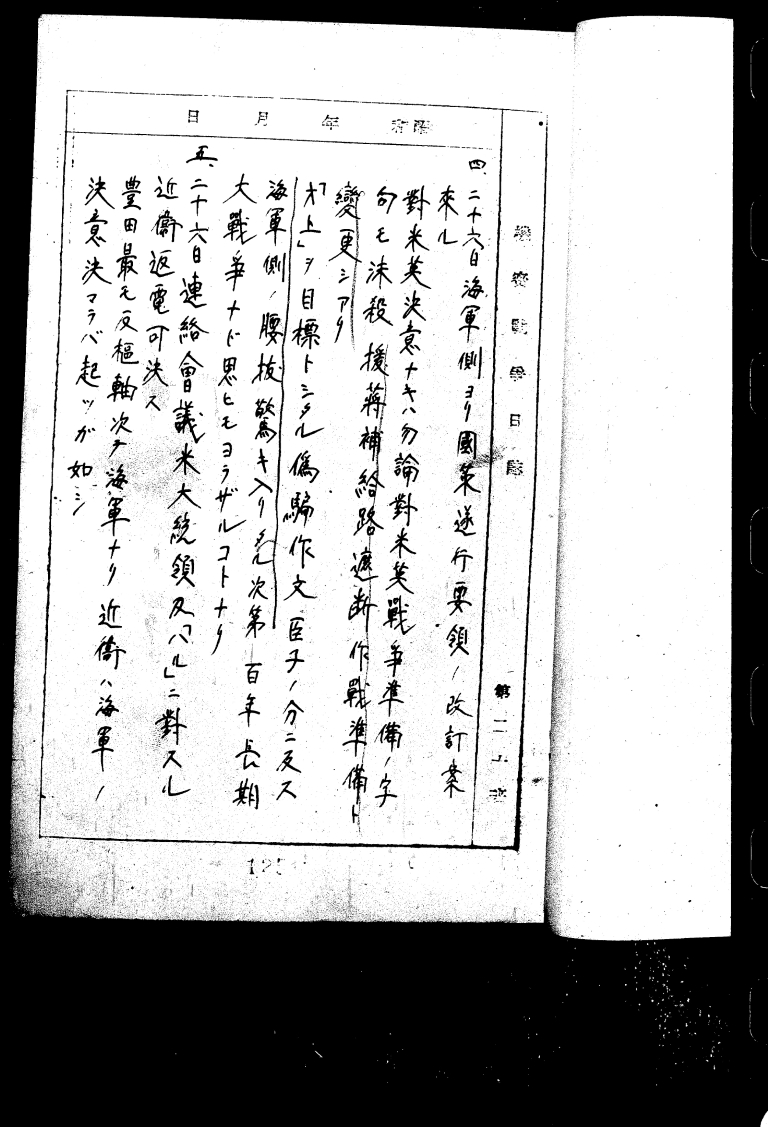 機密戰爭日誌
第二十班
昭和　年　月　日
四、二十六日海軍側ヨリ國策遂行要領ノ改訂案
來ル
對米英決意ナキハ勿論對米英戰爭準備ノ字
句モ沫殺 援蔣補給路遮断作戰準備ト
變更シアリ
「オ上」ヲ目標トシタル僞騙作文 臣子ノ分ニ反ス
海軍側ノ腰抜驚キ入リタル次第 百年長期
大戰爭ナド思ヒモヨラザルコトナリ
五、二十六日連絡會議米大統領及「ハル」ニ對スル
近衞返電可決ス
豊田最モ反樞軸次テ海軍ナリ 近衞ハ海軍ノ
決意決マラバ起ツガ如シ
125